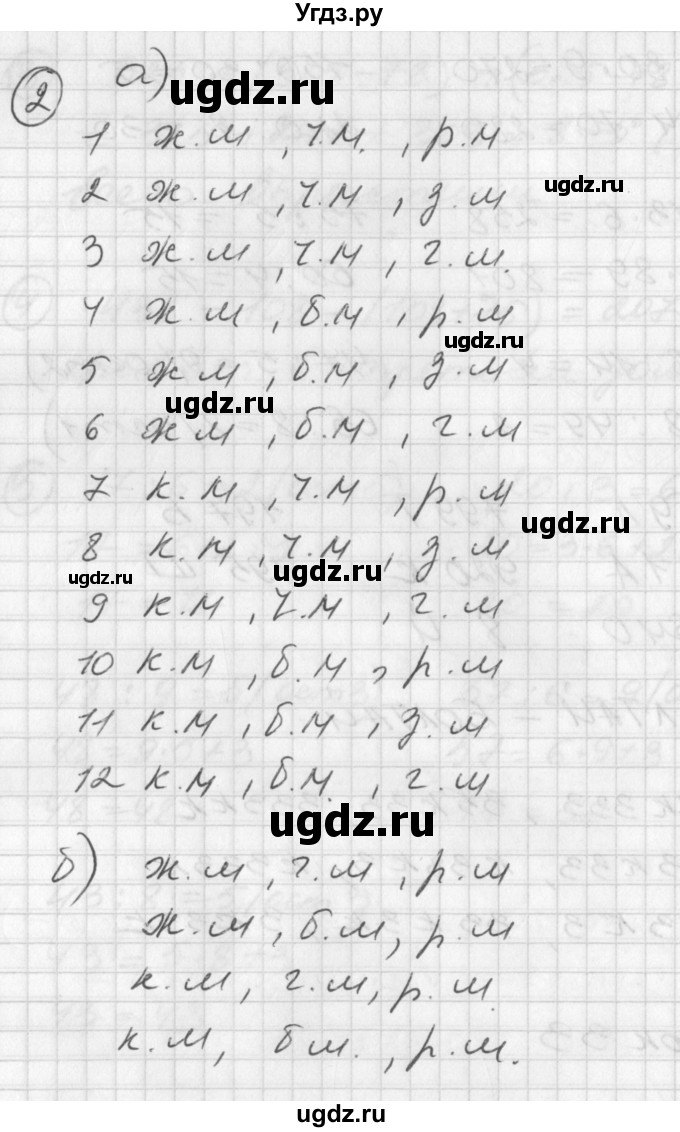 Угдз.ру
2 а)
ugdz.ru
1 ж.м, ч.м., р.м
2 ж.м, ч.м, з.м
ugdz.ru
3 ж.м, ч.м, г.м.
4 ж.м, б.м, р.м
ugdz.ru
5 ж.м, б.м, з.м
ugdz.ru
6 ж.м, б.м, г.м
7 к.м, ч.м, р.м
ugdz.ru
8 к.м, ч.м, з.м
ugdz.ru
ugdz.ru
9 к.м, ч.м, г.м
10 к.м, б.м, р.м
11 к.м, б.м, з.м
12 к.м, б.м., г.м
ugdz.ru
б) ж.м, г.м, р.м
ж.м, б.м, р.м
к.м, г.м, р.м.
к.м, б м., р.м.
ugdz.ru